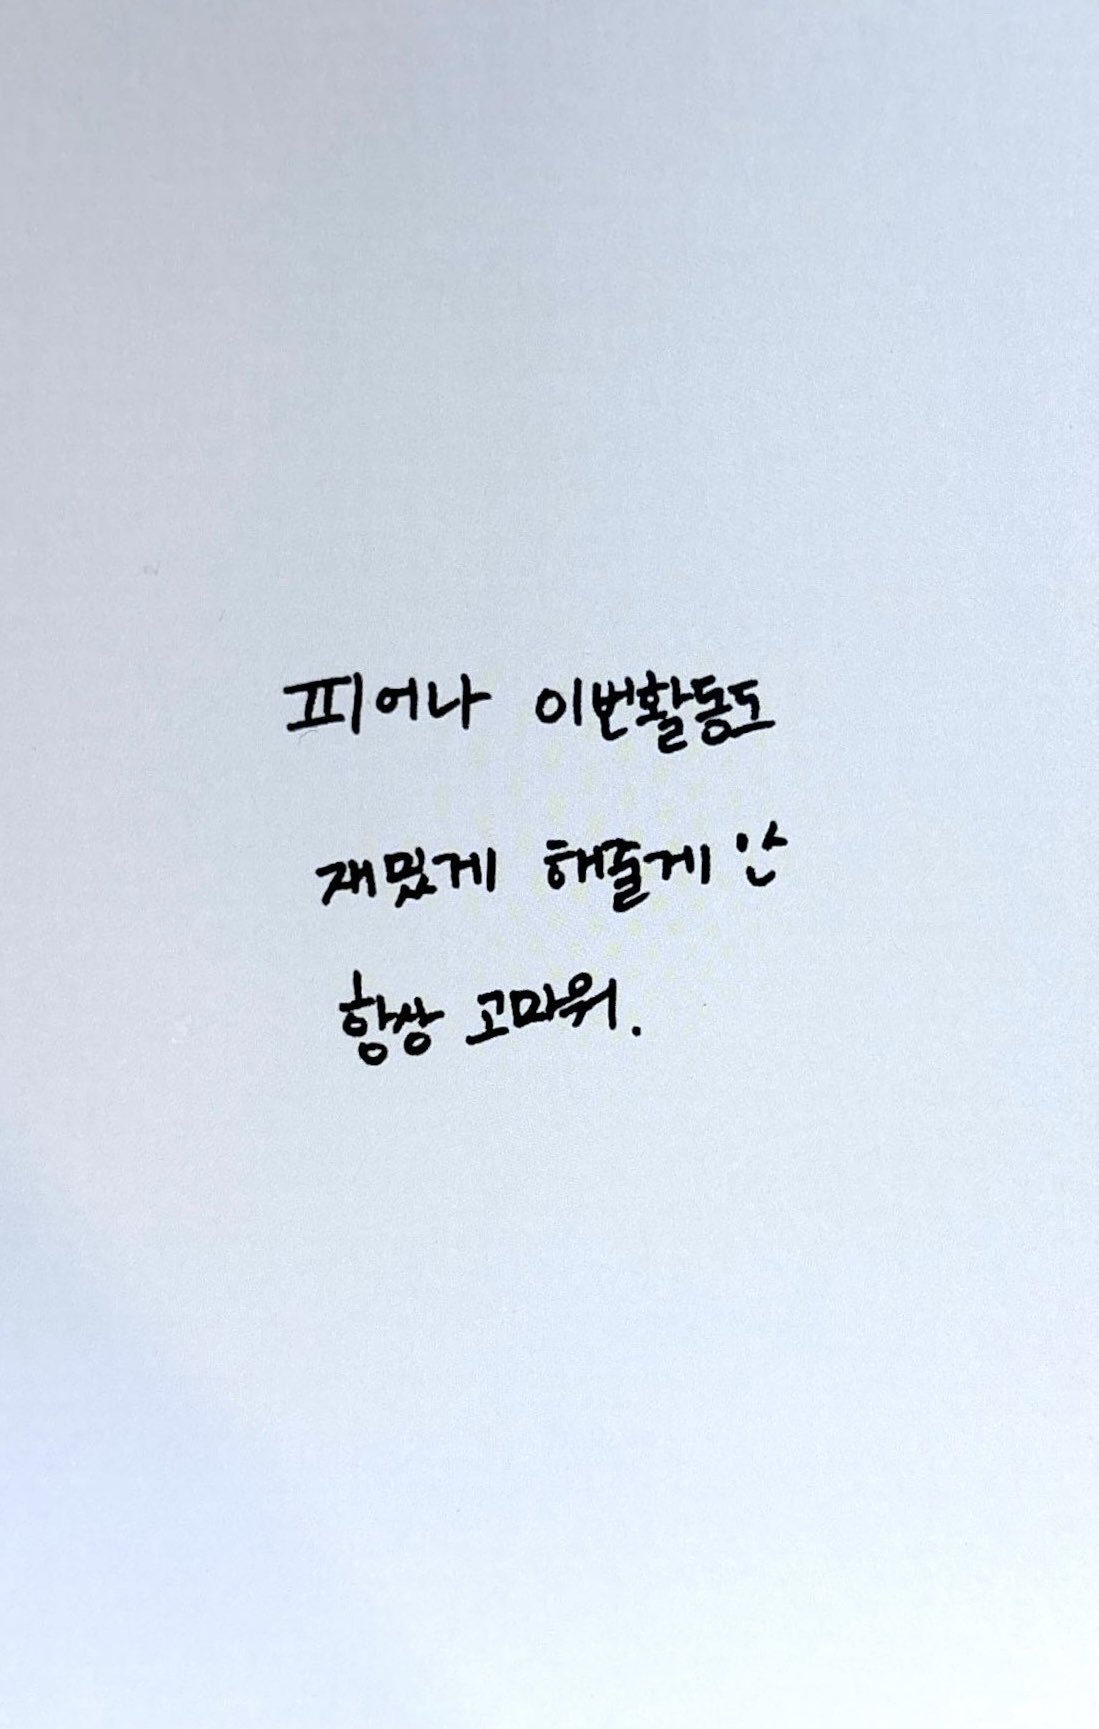 피어나 이번활동도
재밌게 해줄게 ᐟ ᵕ ᐠ
항상 고마워.